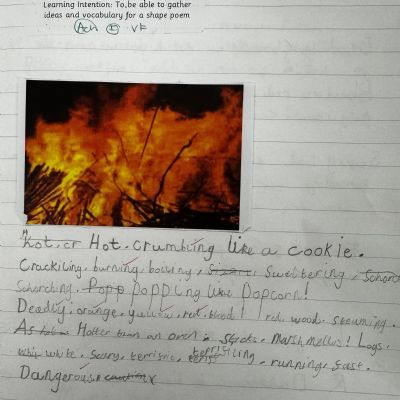 Learning Intention: To, be able to gather
ideas and vocabulary for a shape poem
Ach I VF
Hot. or Hot. crumbling like a cookie.
Crackiling, burning, boiling, sweltering,
Schorching, popping like Popcorn!
Deadly, orange, yellow, red, blood! red, wood, steaming.
Hotter than an oven, sticks, Marshmellws! Logs,
white, Scary, terrific, terrifiling, running, fast.
Dangerous